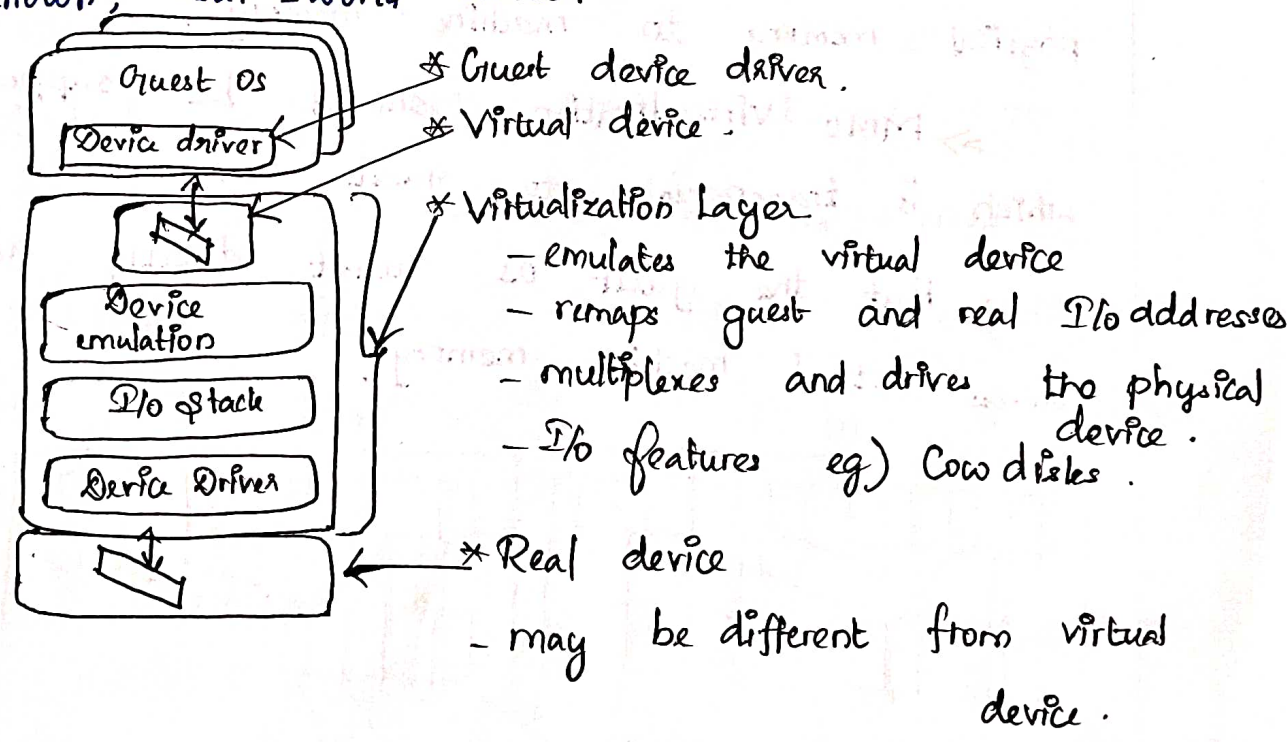 Guest OS
Device driver
Device
emulation
I/o Stack
Device Driver
* Guest device driver.
* Virtual device.
* Virtualization Layer
- emulates the virtual device
- remaps guest and real I/o addresses
- multiplexes and drives the physical
device.
- I/o features eg) Cow disks.
* Real device
- may be different from virtual
device.